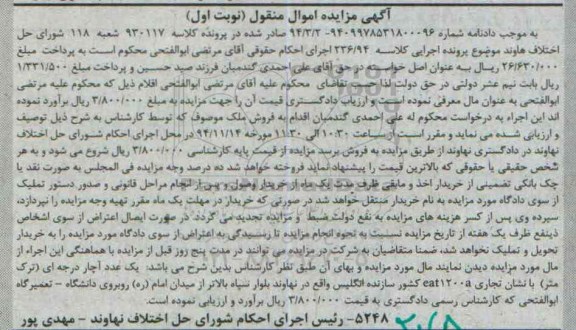 آگهی مزایده اموال منقول (نوبت اول)
به موجب دادنامه شماره ۹۴۰۹۹۷۸۵۳۱۸۰۰۰۹۶-۹۴/۳/۲ صادر شده در پرونده کلاسه ۹۳۰۱۱۷ شعبه ۱۱۸ شورای حل
اختلاف هاوند موضوع پرونده اجرایی کلاسه ۲۳۶/۹۴ اجرای احکام حقوقی آقای مرتضی ابوالفتحی محکوم است به پرداخت مبلغ
۲۶/۶۳۰/۰۰۰ ریال به عنوان اصل خواسته در حق آقای علی احمدی گندمبان فرزند صید حسین و پرداخت مبلغ ۱/۳۳۱/۵۰۰
ریال بابت نیم عشر دولتی در حق دولت لذا حسب تقاضای محکوم علیه آقای مرتضی ابوالفتحی اقلام ذیل که محکوم علیه مرتضی
ابوالفتحی به عنوان مال معرفی نموده است و ارزیاب دادگستری قیمت آن را جهت مزایده به مبلغ ۳/۸۰۰/۰۰۰ ریال برآورد نموده
اند این اجراء به درخواست محکوم له علی احمدی گندمبان اقدام به فروش ملک موصوف که توسط کارشناس به شرح ذیل توصیف
و ارزیابی شده می نماید و مقرر است از ساعت ۱۰:۳۰ الی ۱۱:۳۰ مورخه ۹۴/۱۱/۱۴ در محل اجرای احکام شورای حل اختلاف
نهاوند در دادگستری نهاوند از طریق مزایده به فروش برسد مزایده از قیمت پایه کارشناسی ۳/۸۰۰/۰۰۰ ریال شروع می شود و به هر
شخص حقیقی یا حقوقی که بالاترین قیمت را پیشنهاد نماید فروخته خواهد شد ده درصد وجه مزایده فی المجلس به صورت نقد یا
چک بانکی تضمینی از خریدار اخذ و مابقی ظرف مدت یک ماه از خریدار وصول و پس از انجام مراحل قانونی و صدور دستور تملیک
از سوی دادگاه مورد مزایده به نام خریدار منتقل خواهد شد در صورتی که خریدار در مهلت یک ماه مقرر تهیه وجه مزایده را نپردازد،
سپرده وی پس از کسر هزینه های مزایده به نفع دولت ضبط و مزایده تجدید می گردد در صورت ایصال اعتراض از سوی اشخاص
ذینفع ظرف یک هفته از تاریخ مزایده نسبت به نحوه انجام مزایده تا رسیدگی به اعتراض از سوی دادگاه مورد مزایده را به خریدار
تحویل و تملیک نخواهد شد، ضمنا متقاضیان به شرکت در مزایده می توانند در مدت پنج روز قبل از مزایده با هماهنگی این اجراء از
مال مورد مزایده دیدن نمایند مال مورد مزایده و بهای آن طبق نظر کارشناس بدین شرح می باشد: یک عدد آچار درجه ای (ترک
متر) با نشان تجاری eat1200a کشور سازنده انگلیس واقع در نهاوند بلوار سپاه بالاتر از میدان امام (ره) روبروی دانشگاه - تعمیرگاه
ابوالفتحی که کارشناس رسمی دادگستری به قیمت ۳/۸۰۰/۰۰۰ ریال برآورد و ارزیابی نموده است.
۵۲۴۸- رئیس اجرای احکام شورای حل اختلاف نهاوند - مهدی پور